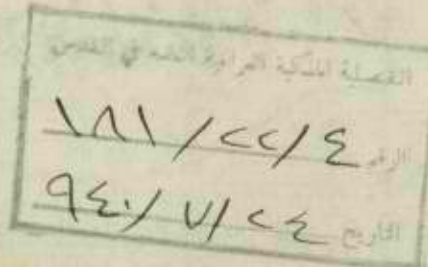 القنصلية الملكية العراقية العامة في القدس
الرقم ١٨١/٢٢/٤
التاريخ ٩٤٠/٧/٢٤